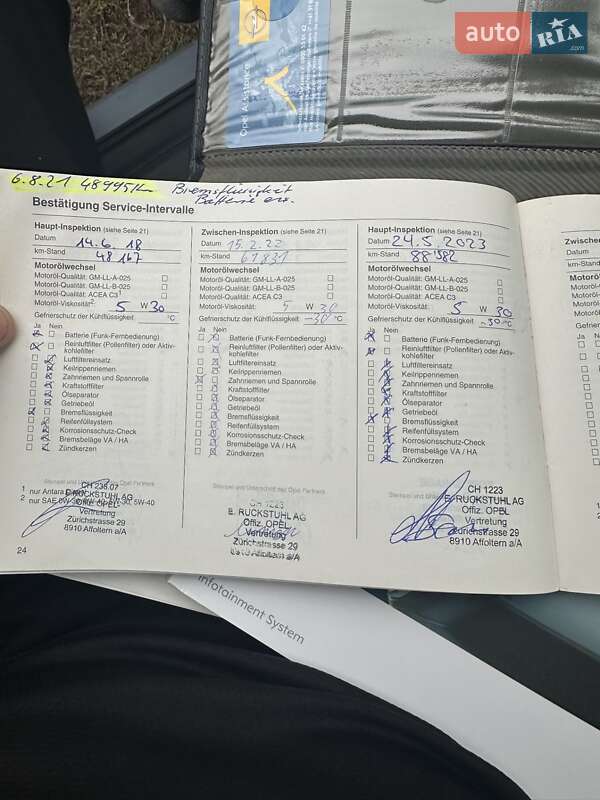 auto RIA .com
Opel Assistance
6.8.21 48995 Km Bremsflüssigkeit
Batterie ers.
Bestätigung Service-Intervalle
Haupt-Inspektion (siehe Seite 21)
Datum 14.6.18
km-Stand 48 167
Motorölwechsel
Motoröl-Qualität: GM-LL-A-025
Motoröl-Qualität: GM-LL-B-025
Motoröl-Qualität: ACEA C3¹
Motoröl-Viskosität²: 5 W 30
Gefrierschutz der Kühlflüssigkeit °C
Ja Nein
Batterie (Funk-Fernbedienung)
Reinluftfilter (Pollenfilter) oder Aktiv-
kohlefilter
Luftfiltereinsatz
Keilrippenriemen
Zahnriemen und Spannrolle
Kraftstofffilter
Ölseparator
Getriebeöl
Bremsflüssigkeit
Reifenfüllsystem
Korrosionsschutz-Check
Bremsbeläge VA / HA
Zündkerzen
Stempel und Unterschrift des Opel Partners
1 nur Antara Diesel
2 nur SAE 0W-30, 0W-40, 5W-30, 5W-40
E. RUCKSTUHL AG
Offiz. OPEL
Vertretung
Zürichstrasse 29
8910 Affoltern a/A
24
Zwischen-Inspektion (siehe Seite 21)
Datum 15.2.22
km-Stand 61831
Motorölwechsel
Motoröl-Qualität: GM-LL-A-025
Motoröl-Qualität: GM-LL-B-025
Motoröl-Qualität: ACEA C3
Motoröl-Viskosität: 5 W 30
Gefrierschutz der Kühlflüssigkeit -30 °C
Ja Nein
Batterie (Funk-Fernbedienung)
Reinluftfilter (Pollenfilter) oder Aktiv-
kohlefilter
Luftfiltereinsatz
Keilrippenriemen
Zahnriemen und Spannrolle
Kraftstofffilter
Ölseparator
Getriebeöl
Bremsflüssigkeit
Reifenfüllsystem
Korrosionsschutz-Check
Bremsbeläge VA / HA
Zündkerzen
Stempel und Unterschrift des Opel Partners
CH 1223
E. RUCKSTUHL AG
Offiz. OPEL
Vertretung
Zürichstrasse 29
8910 Affoltern a/A
Haupt-Inspektion (siehe Seite 21)
Datum 24.5.2023
km-Stand 88'982
Motorölwechsel
Motoröl-Qualität: GM-LL-A-025
Motoröl-Qualität: GM-LL-B-025
Motoröl-Qualität: ACEA C3
Motoröl-Viskosität: 5 W 30
Gefrierschutz der Kühlflüssigkeit -30 °C
Ja Nein
Batterie (Funk-Fernbedienung)
Reinluftfilter (Pollenfilter) oder Aktiv-
kohlefilter
Luftfiltereinsatz
Keilrippenriemen
Zahnriemen und Spannrolle
Kraftstofffilter
Ölseparator
Getriebeöl
Bremsflüssigkeit
Reifenfüllsystem
Korrosionsschutz-Check
Bremsbeläge VA / HA
Zündkerzen
CH 1223
E. RUCKSTUHL AG
Offiz. OPEL
Vertretung
Zürichstrasse 29
8910 Affoltern a/A
Zwischen-
Datum
km-Stand
Motorölwechsel
Motoröl-
Motoröl-
Motoröl-
Motoröl-
Gefriersch
Ja Nein
Infotainment System